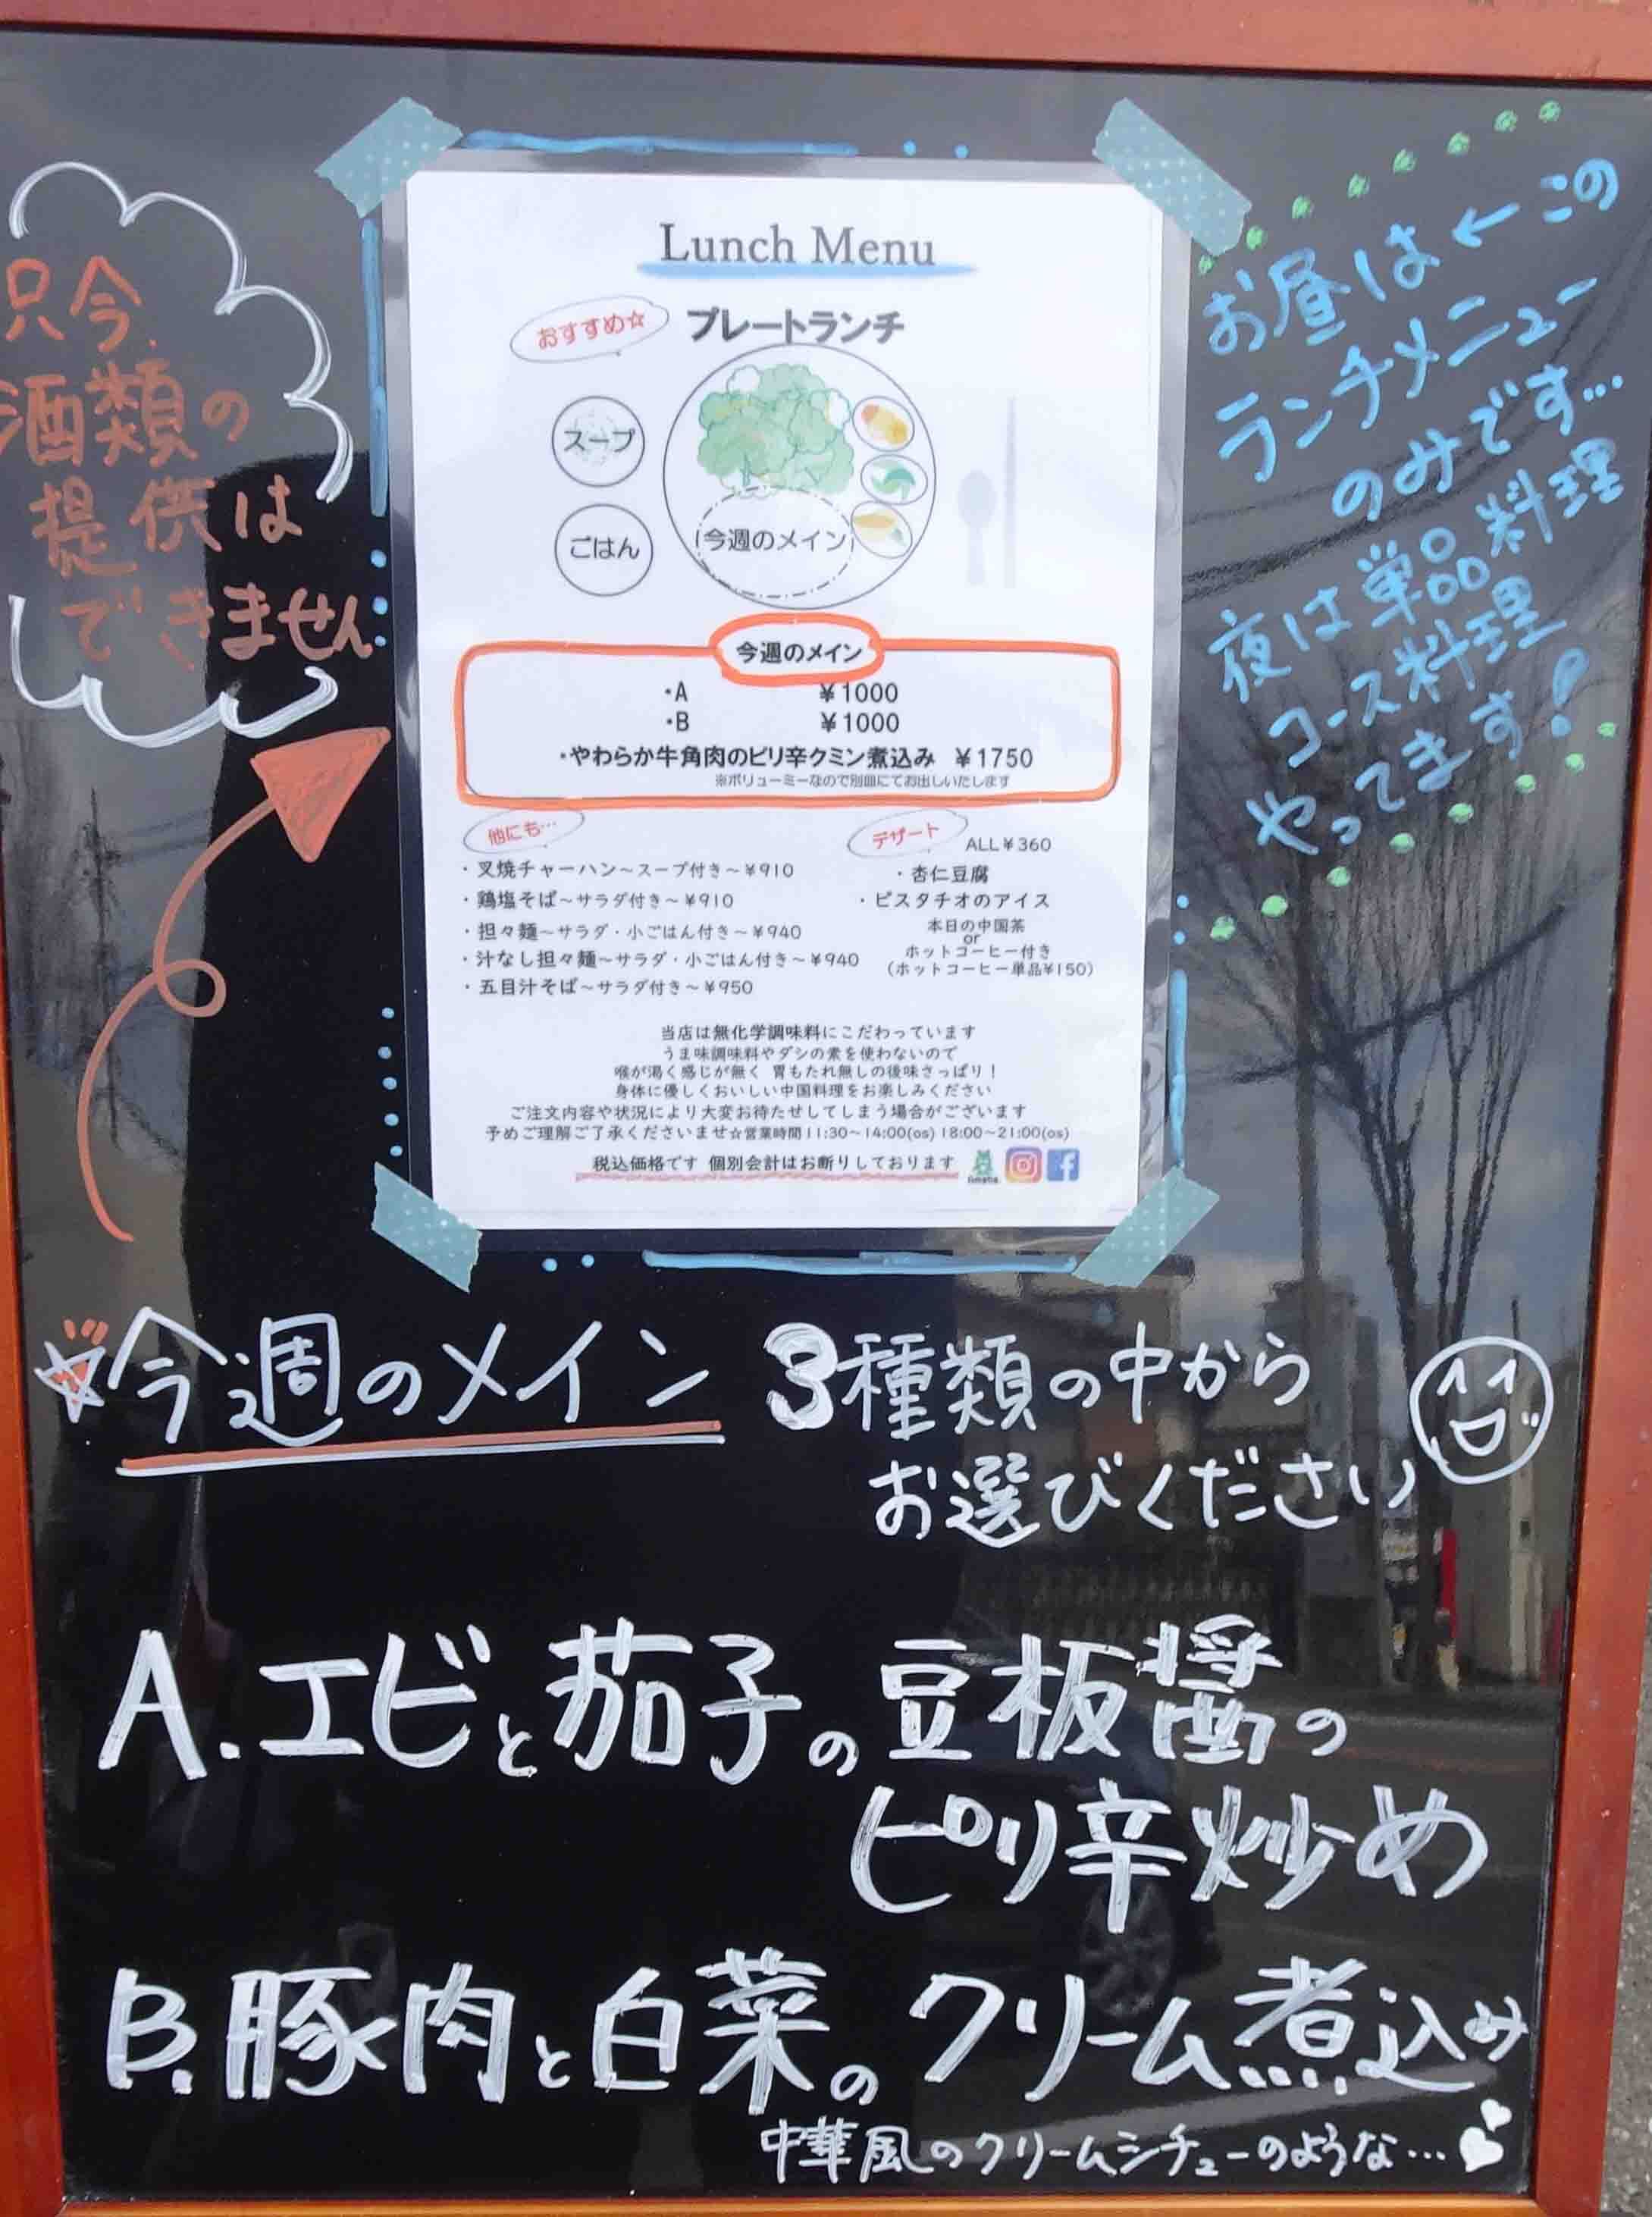 只今
酒類の
提供は
できません
Lunch Menu
おすすめ☆
プレートランチ
スープ
ごはん
今週のメイン
今週のメイン
・A ¥1000
・B ¥1000
・やわらか牛角肉のピリ辛クミン煮込み ¥1750
※ボリューミーなので別皿にてお出しいたします
他にも…
・叉焼チャーハン～スープ付き～¥910
・鶏塩そば～サラダ付き～¥910
・担々麺～サラダ・小ごはん付き～¥940
・汁なし担々麺～サラダ・小ごはん付き～¥940
・五目汁そば～サラダ付き～¥950
デザート
ALL¥360
・杏仁豆腐
・ピスタチオのアイス
本日の中国茶
or
ホットコーヒー付き
(ホットコーヒー単品¥150)
当店は無化学調味料にこだわっています
うま味調味料やダシの素を使わないので
喉が渇く感じが無く 胃もたれ無しの後味さっぱり!
身体に優しくおいしい中国料理をお楽しみください
ご注文内容や状況により大変お待たせしてしまう場合がございます
予めご理解ご了承くださいませ☆営業時間11:30～14:00(os) 18:00～21:00(os)
税込価格です 個別会計はお断りしております
お昼は←この
ランチメニュー
のみです…
夜は単品料理
コース料理
やってます!
☆今週のメイン 3種類の中から
お選びください
A.エビと茄子の豆板醤の
ピリ辛炒め
B.豚肉と白菜のクリーム煮込み
中華風のクリームシチューのような…